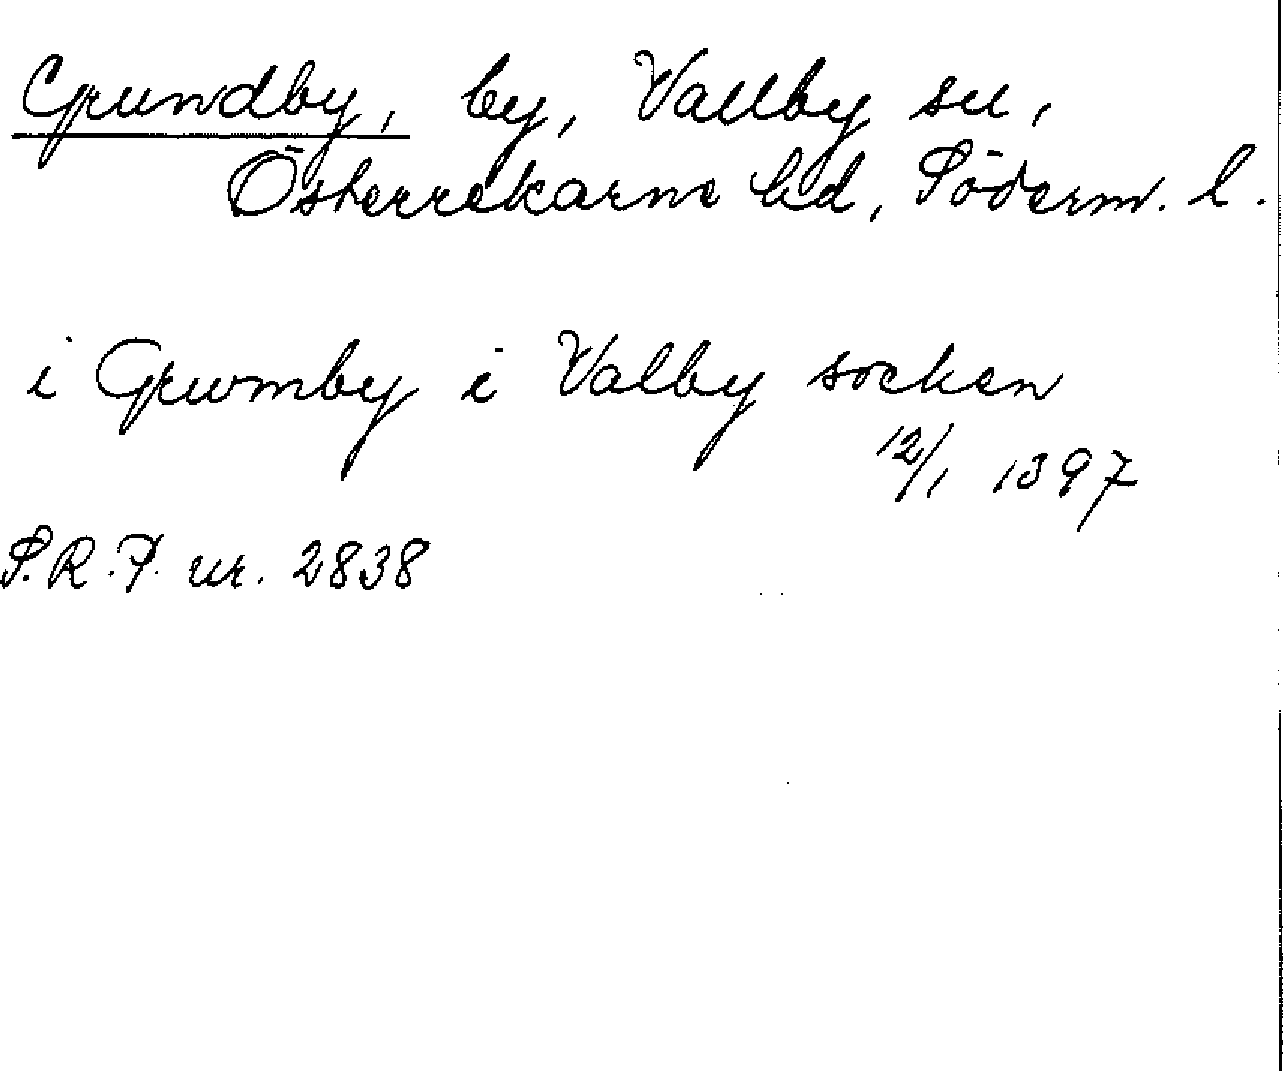 Grundby, by, Vallby sn,
Österrekarne hd, Söderm. l.
i Grwmby i Valby socken
12/1 1397
S.R.P. nr. 2838